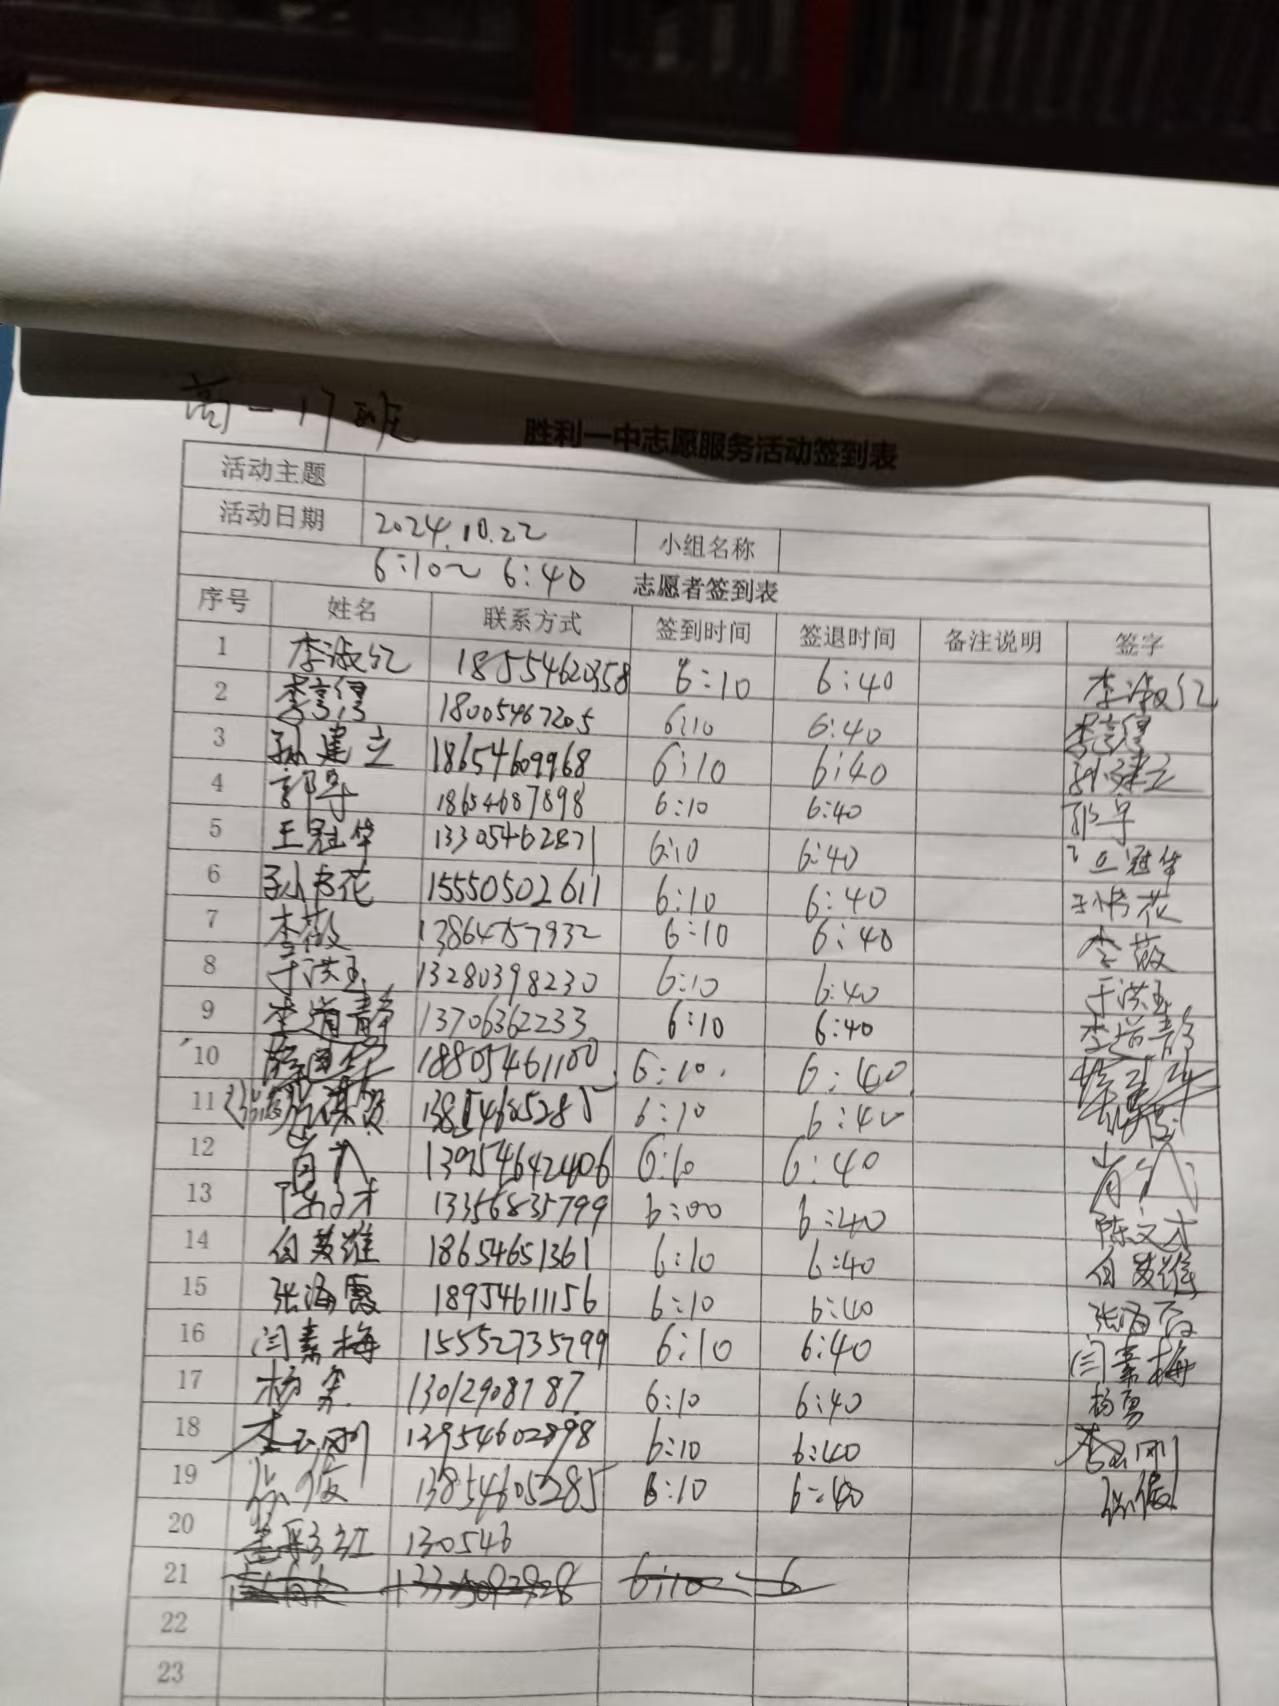 高一17班
胜利一中志愿服务活动签到表
活动主题
活动日期 2024.10.22 小组名称
6:10~6:40 志愿者签到表
序号 姓名 联系方式 签到时间 签退时间 备注说明 签字
1 李淑 18554620358 6:10 6:40 李淑
2 李 18005467205 6:10 6:40 李
3 孙建立 18654609968 6:10 6:40 孙建立
4 郭 18654687898 6:10 6:40 郭
5 王冠华 13305462871 6:10 6:40 王冠华
6 孙书花 15550502611 6:10 6:40 孙书花
7 李薇 13864757932 6:10 6:40 李薇
8 于洪玉 13280398230 6:10 6:40 于洪玉
9 李道静 13706362233 6:10 6:40 李道静
10 18805461100 6:10 6:40
11 6:10 6:40
12 13954642406 6:10 6:40
13 陈文才 13356835799 6:00 6:40 陈文才
14 英雄 18654651361 6:10 6:40 英雄
15 张海霞 18954611156 6:10 6:40 张海霞
16 闫素梅 15552735799 6:10 6:40 闫素梅
17 杨勇 13012908787 6:10 6:40 杨勇
18 李玉刚 13954602898 6:10 6:40 李玉刚
19 徐俊 13854605285 6:10 6:40 徐俊
20 红 130546
21 6:10 6
22
23